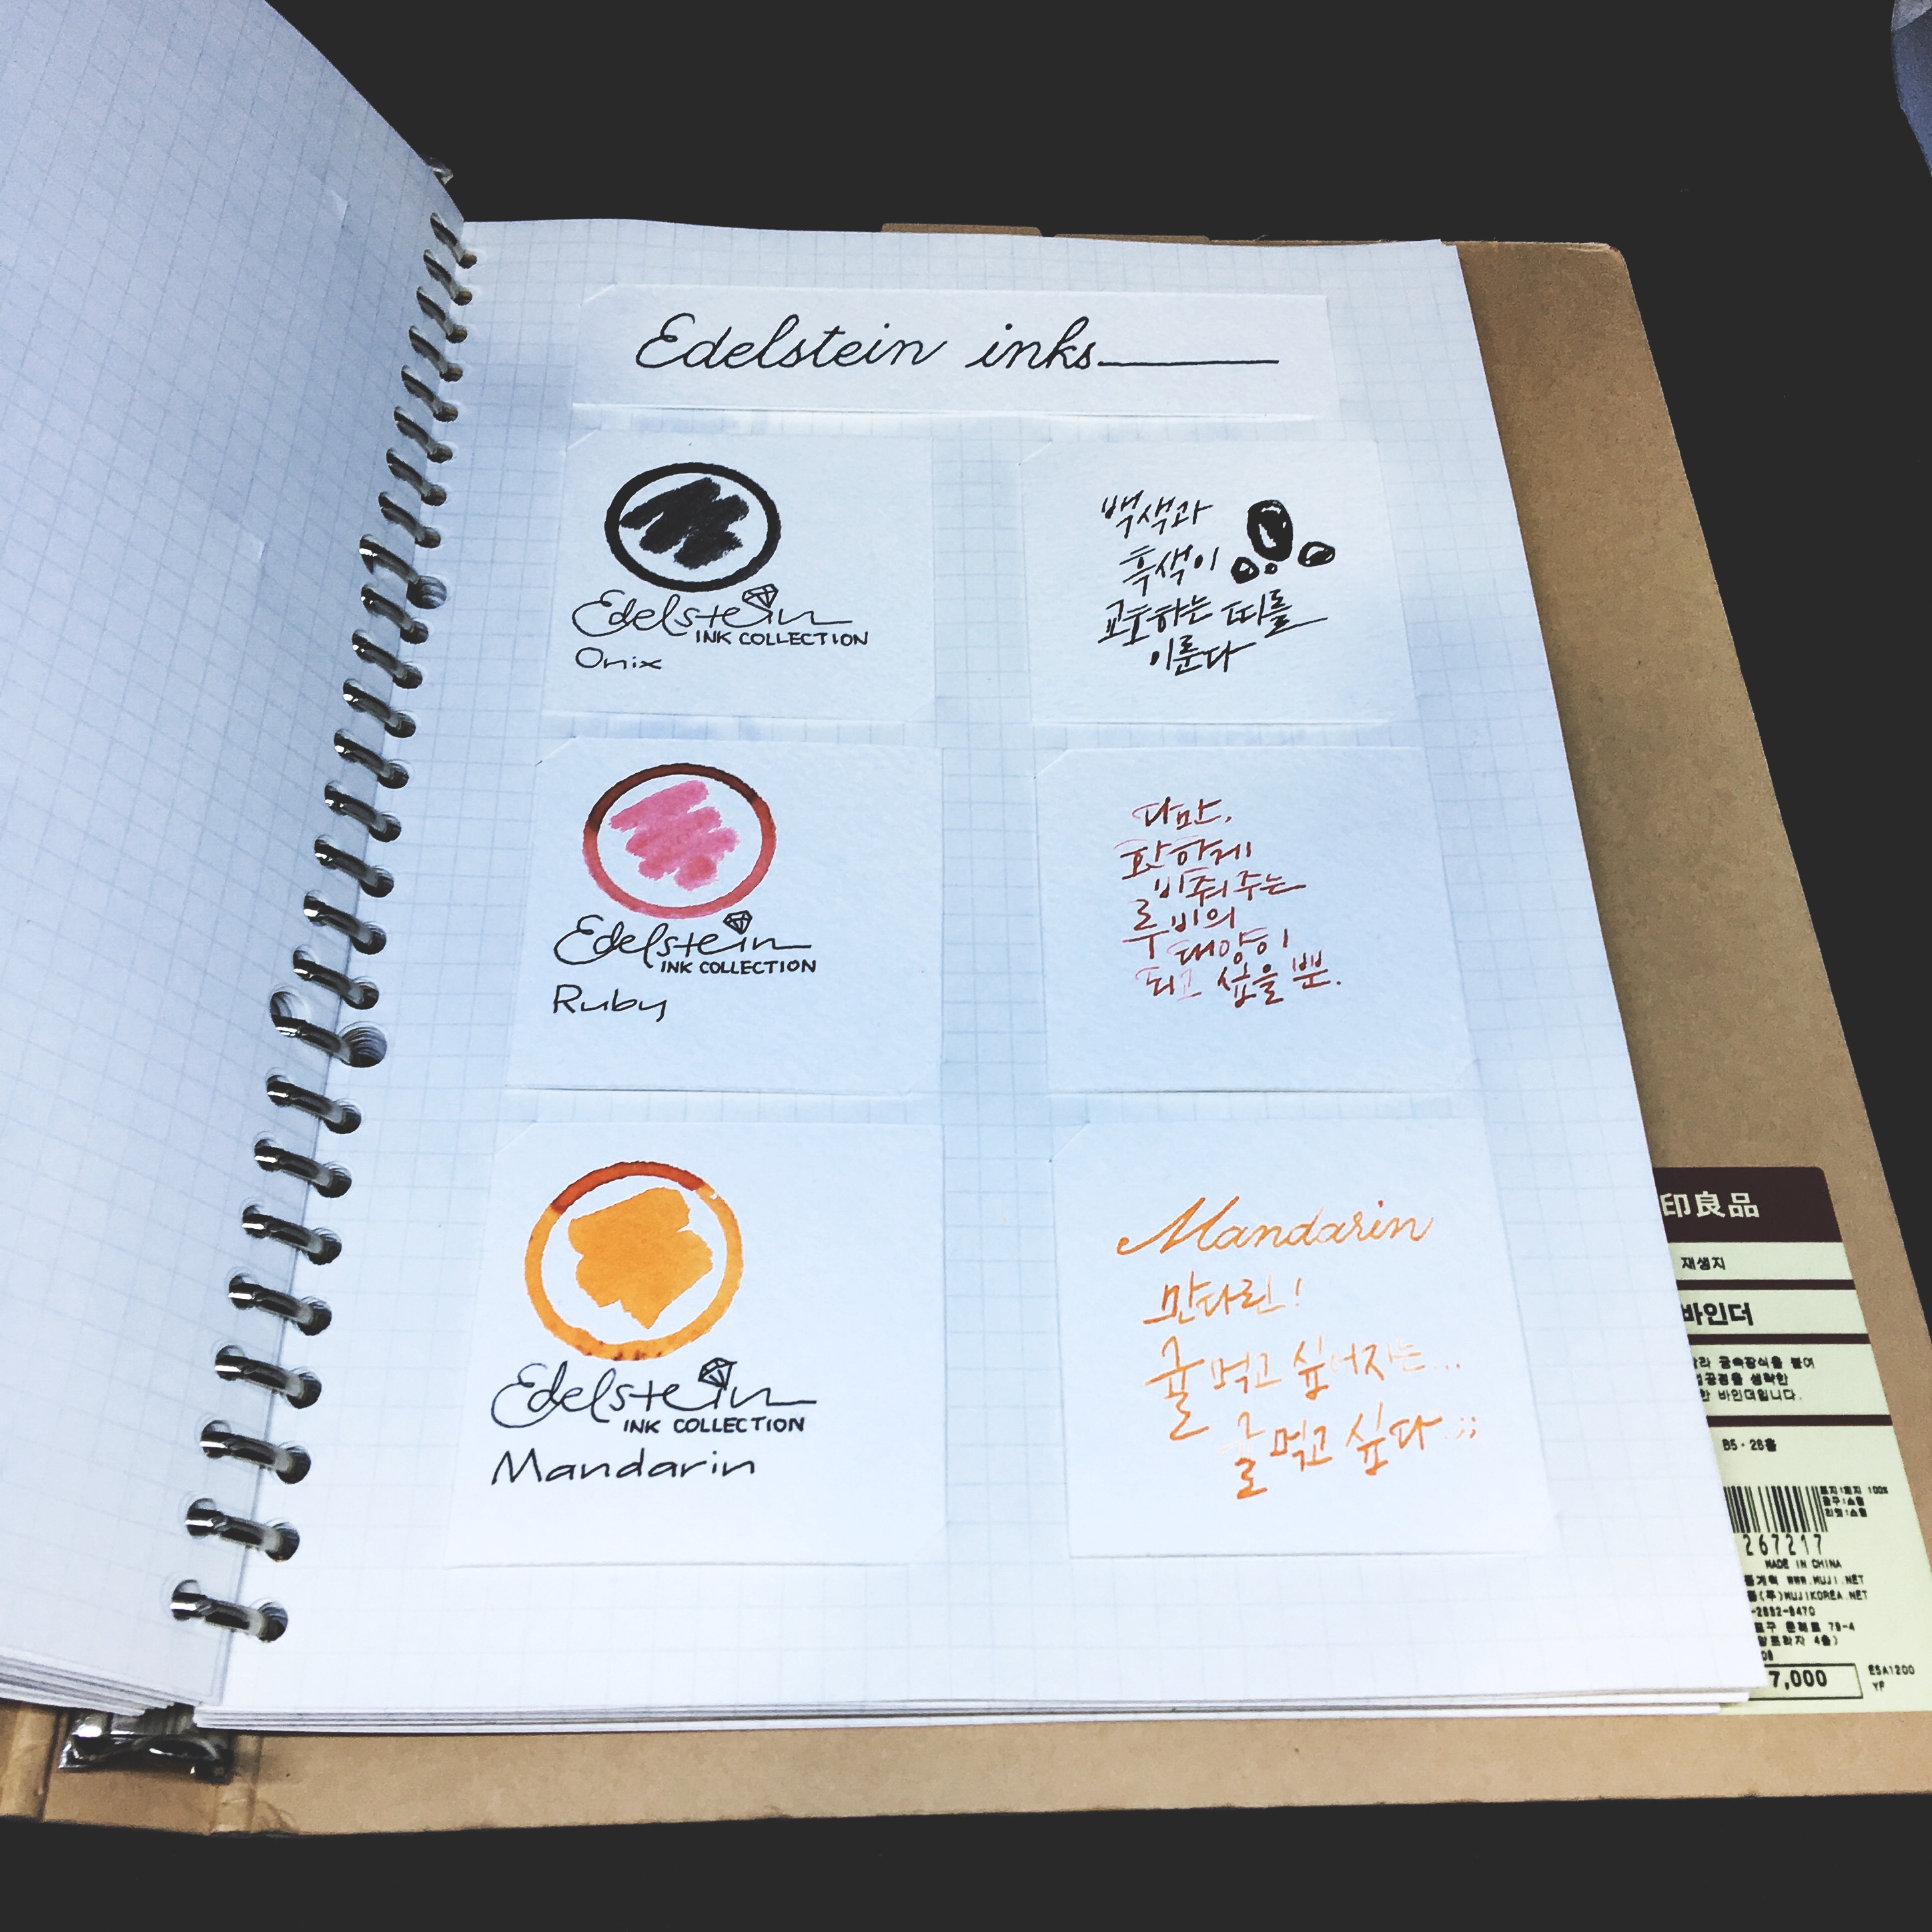 Edelstein inks
Edelstein
INK COLLECTION
Onix
백색과
흑색이
교호하는 띠를
이룬다
Edelstein
INK COLLECTION
Ruby
다만,
환하게
비춰주는
루비의
태양이
되고 싶을 뿐.
Edelstein
INK COLLECTION
Mandarin
Mandarin
만다린!
귤 먹고 싶어지는...
귤 먹고 싶다.;;
印良品
재생지
바인더
금속장식을 붙여
생략한
한 바인더입니다.
B5・26홀
표지:표지 100%
267217
MADE IN CHINA
WWW.MUJI.NET
(주)MUJIKOREA.NET
-2682-8470
79-4
4층)
7,000
ESA1200
YF